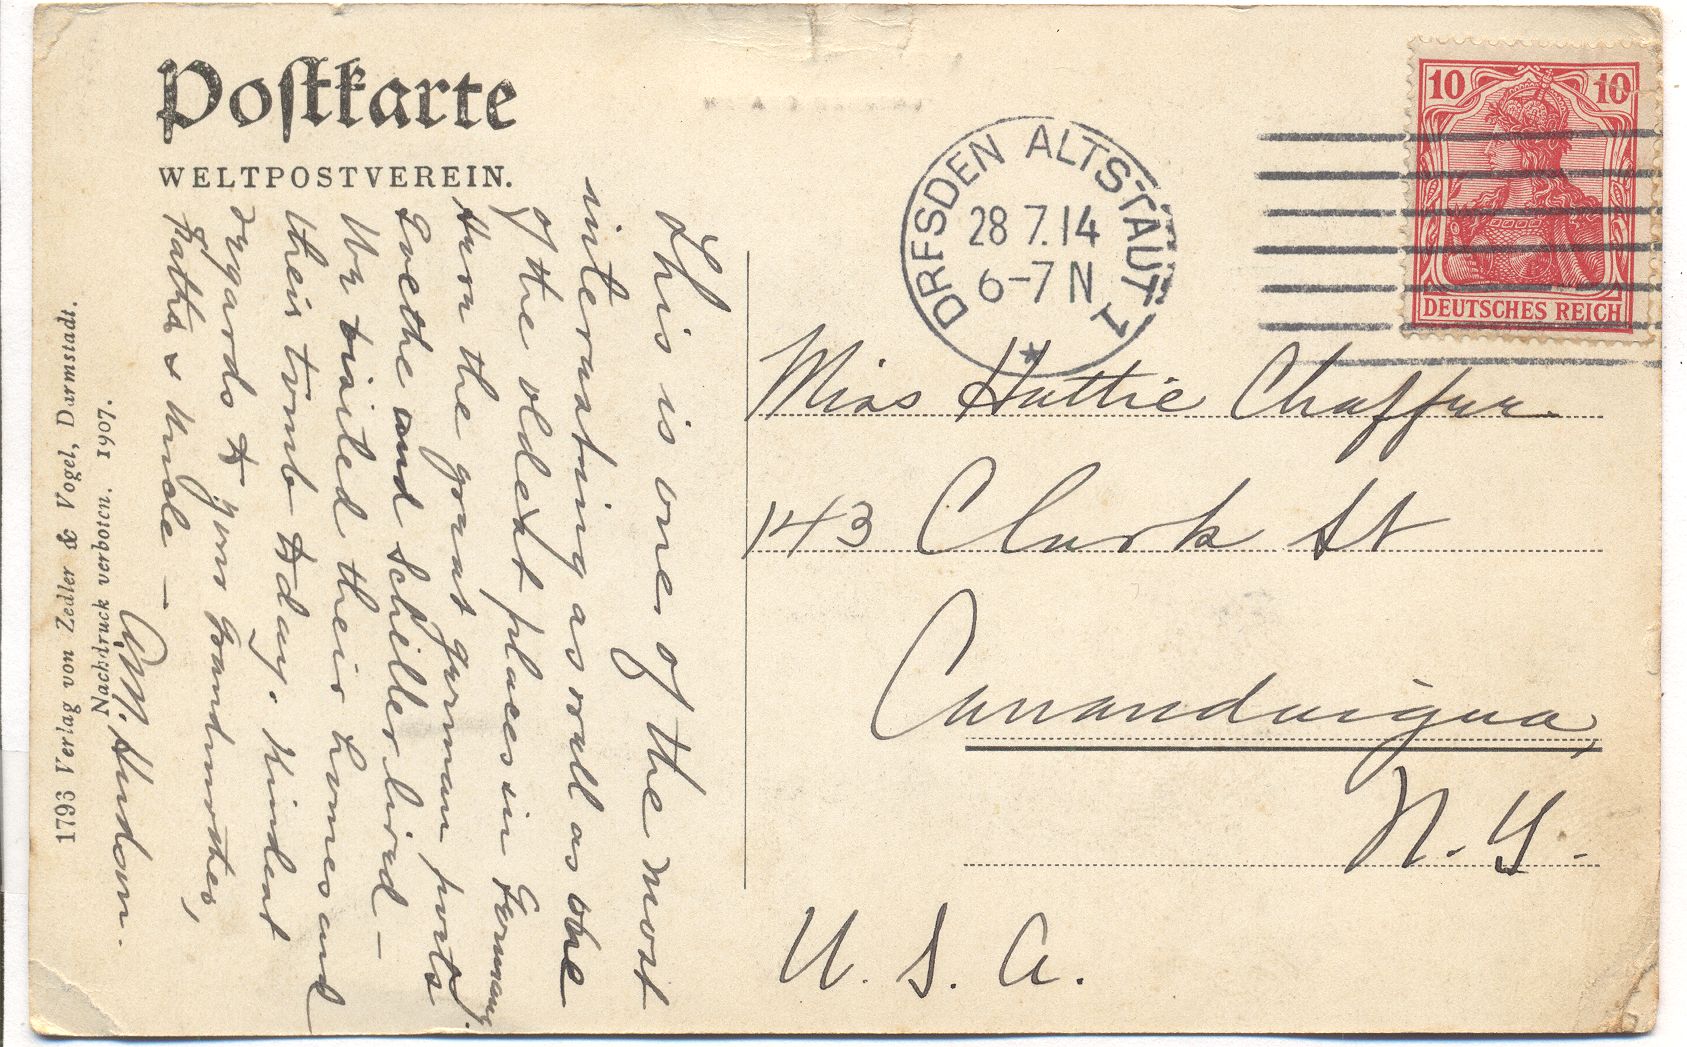 Postkarte
WELTPOSTVEREIN.
This is one of the most
interesting as well as one
of the oldest places in Germany.
Here the great german poets
Goethe and Schiller lived –
We visited their homes and
their tomb today. Kindest
regards to your Grandmother,
Father & Uncle –
A.M. Hudson.
1793 Verlag von Zedler & Vogel, Darmstadt.
Nachdruck verboten. 1907.
DRESDEN ALTSTADT 1
28 7.14
6-7 N
10 10
DEUTSCHES REICH
Miss Hattie Chaffee
143 Clark St
Canandaigua,
N. Y.
U. S. A.